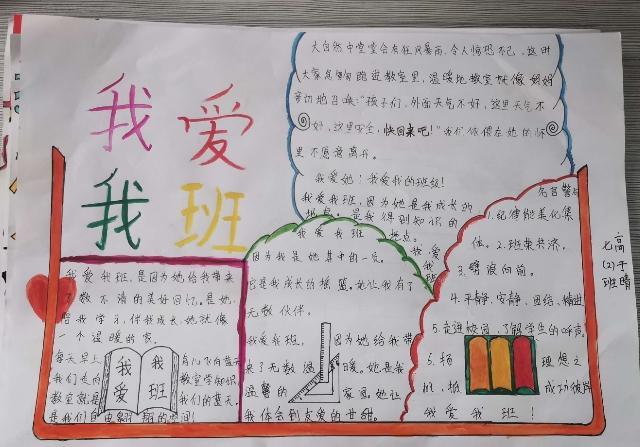 我 爱
我 班
大自然中常常会有狂风暴雨，令人惊恐不已，这时
大家急匆匆跑进教室里，温暖地教室就像妈妈
亲切地召唤："孩子们，外面天气不好，这里天气不
好，这里安全，快回来吧！"我们依偎在她的怀
里不愿意离开。
我爱她！我爱我的班级！
我爱我班，因为她是我成长的
是我得到知识的
我爱我班
地点。
名言警句
1.纪律能美化集
体。2.班荣我荣。
3.劈浪向前。
4.平静、安静、团结、精进
5.走进校园，了解学生的呼声
5.扬
理想之
帆，抽
成功彼岸
我爱我班！
高子晴
七(2)班
我爱我班，是因为她给我带来
了数不清的美好回忆。是她
陪我学习，伴我成长。她就像
一个温暖的家。
每天早上
我们走向
教室就是
我爱
我班
教室学知识
我们的蓝天，
是我们自由翱翔的空间！
因为我是她其中的一员。
它是我成长的摇篮。她让我有了
无数伙伴。
我爱
我班
我爱我班，
因为她给我带
来了无数温
暖。她是我
温馨的
家园。她让
我体会到友爱的甘甜。